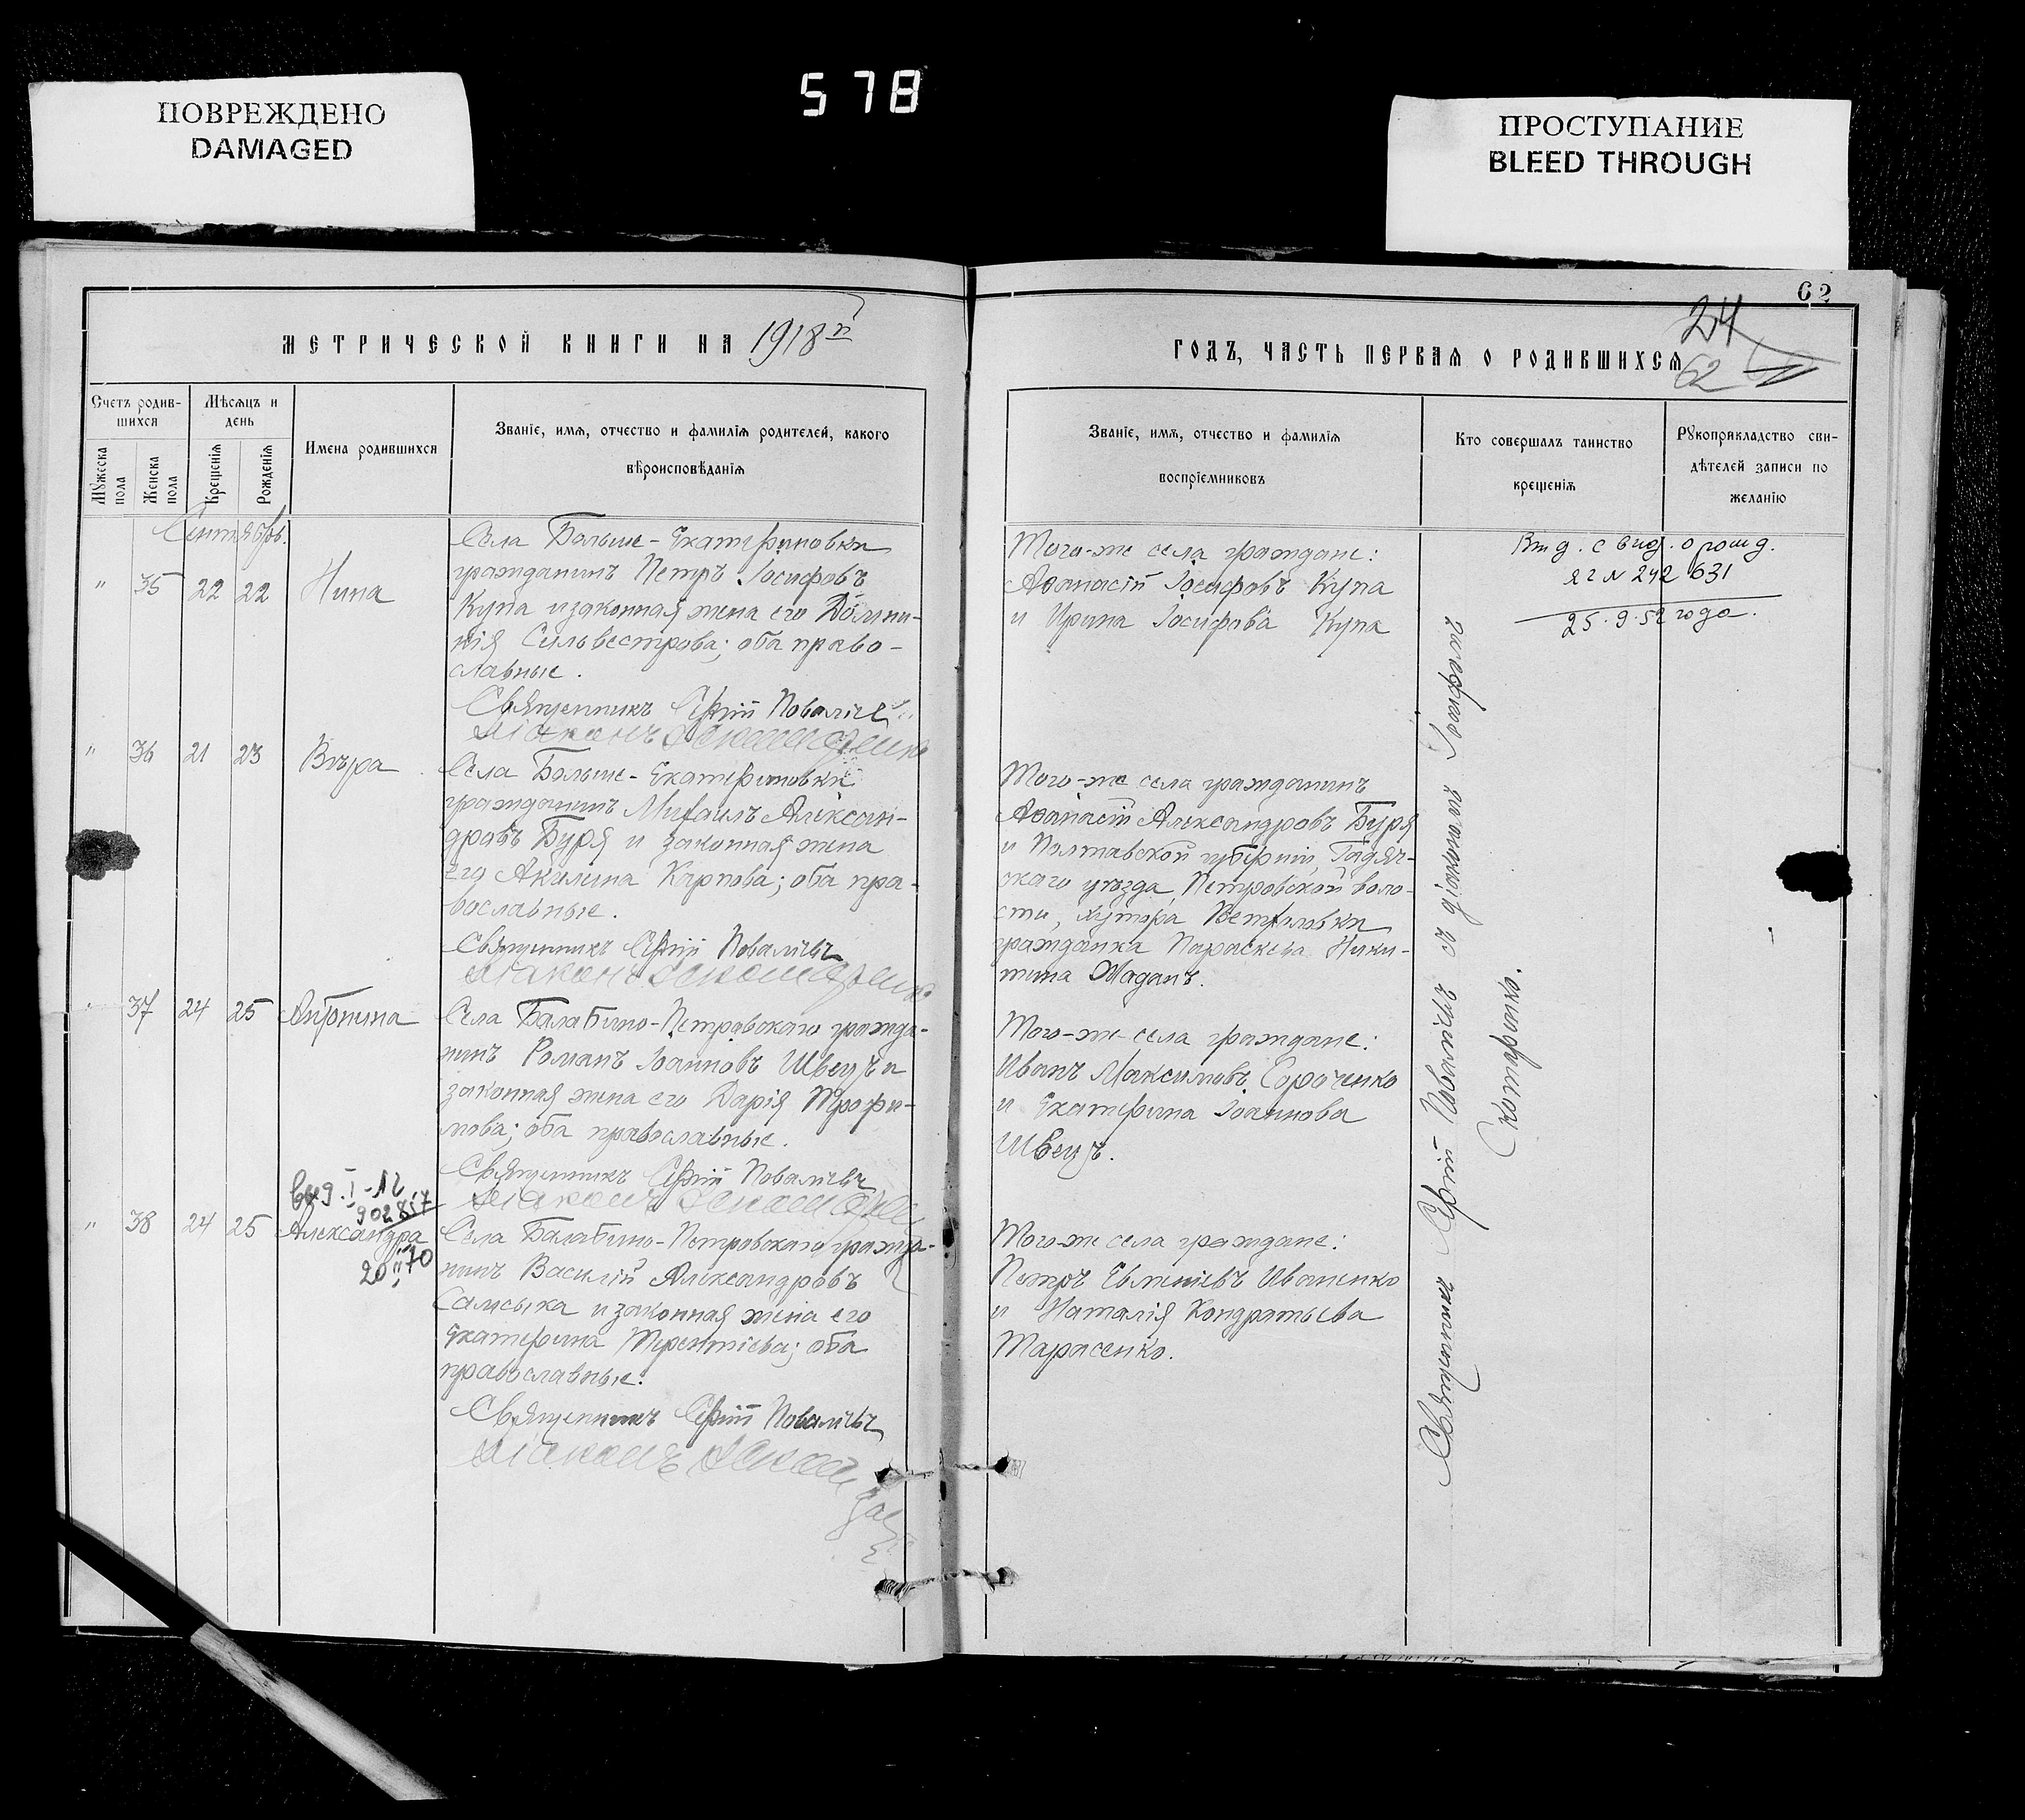 ПОВРЕЖДЕНО
DAMAGED
578
ПРОСТУПАНИЕ
BLEED THROUGH
62
24
62
МЕТРИЧЕСКОЙ КНИГИ НА 1918й
ГОДЪ, ЧАСТЬ ПЕРВАЯ О РОДИВШИХСЯ
Счетъ родив-
шихся
Мѣсяцъ и
день
Мужеска
пола
Женска
пола
Крещенія
Рожденія
Имена родившихся
Званіе, имя, отчество и фамилія родителей, какого
вѣроисповѣданія
Званіе, имя, отчество и фамилія
воспріемниковъ
Кто совершалъ таинство
крещенія
Рукоприкладство сви-
дѣтелей записи по
желанію
Сентябрь.
" 35 22 22 Нина
Села Больше-Екатериновки
гражданинъ Петръ Іосифовъ
Купа и законная жена его Домни-
кія Сильвестрова; оба право-
славные.
Священникъ Сергій Поваличъ
Діаконъ Скотаренко
Того-же села граждане:
Аѳанасій Іосифовъ Купа
и Ирина Іосифова Купа
Выд. с вид. о рожд.
ЯГ N 242 631
25.9.52 года.
" 36 21 23 Вѣра
Села Больше-Екатериновки
гражданинъ Михаилъ Алексан-
дровъ Буря и законная жена
его Акилина Карпова; оба пра-
вославные.
Священникъ Сергій Поваличъ
Діаконъ Скотаренко
Того-же села гражданинъ
Аѳанасій Александровъ Буря
и Полтавской губерніи, Гадяч-
скаго уѣзда, Петровской воло-
сти, хутора
гражданка Параскева Ники-
тина Жаданъ.
" 37 24 25 Антонина
Села Балабино-Петровскаго гражда-
нинъ Романъ Іоанновъ Швецъ и
законная жена его Дарія Трофи-
мова; оба православные.
Священникъ Сергій Поваличъ
Діаконъ Скотаренко
Того-же села граждане:
Иванъ Максимовъ Сороченко
и Екатерина Іоаннова
Швецъ.
выд. I-ЯГ
902817
" 38 24 25 Александра
20 II 70
Села Балабино-Петровскаго гражда-
нинъ Василій Александровъ
Самсыка и законная жена его
Екатерина Терентіева; оба
православные.
Священникъ Сергій Поваличъ
Діаконъ Скотаренко
Того-же села граждане:
Петръ Евменіевъ Иваненко
и Наталія Кондратьева
Тарасенко.
Священникъ Сергій Поваличъ съ діакономъ Іосифомъ
Скотаренко.